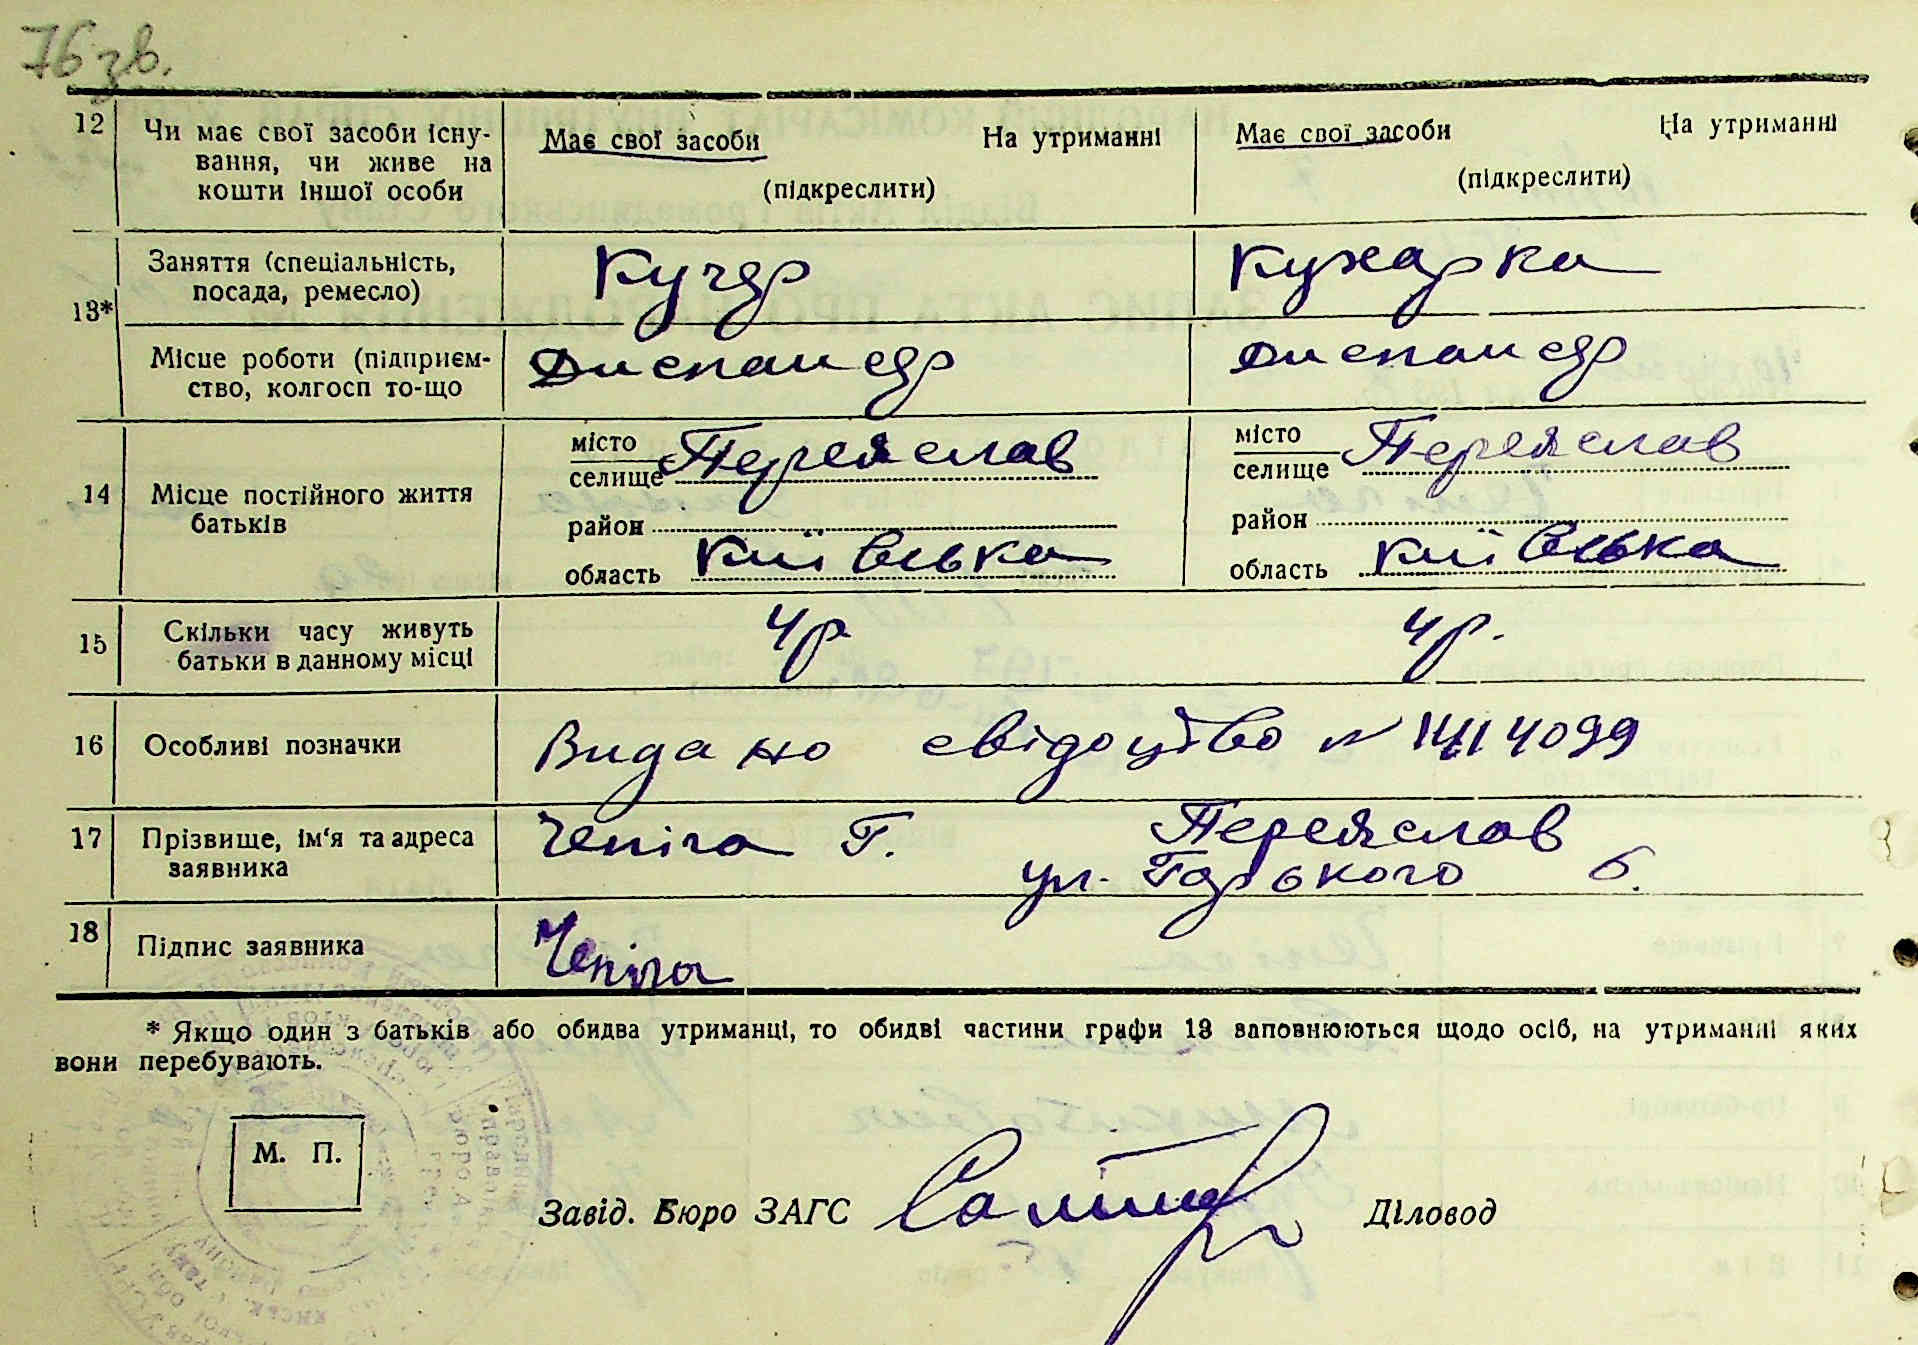 76 зв.
12 Чи має свої засоби існу- Має свої засоби На утриманні Має свої засоби На утриманні
вання, чи живе на
кошти іншої особи (підкреслити) (підкреслити)
13* Заняття (спеціальність, Кучер Кухарка
посада, ремесло)
Місце роботи (підприєм- Диспансер Диспансер
ство, колгосп то-що
14 Місце постійного життя батьків
місто Переяслав місто Переяслав
селище селище
район район
область Київська область Київська
15 Скільки часу живуть 4 р. 4 р.
батьки в данному місці
16 Особливі позначки Видано свідоцтво № 4099
17 Прізвище, ім'я та адреса Чепіга Г. Переяслав
заявника ул. Горького 6.
18 Підпис заявника Чепіга
* Якщо один з батьків або обидва утриманці, то обидві частини графи 13 заповнюються щодо осіб, на утриманні яких
вони перебувають.
М. П.
Завід. Бюро ЗАГС Діловод